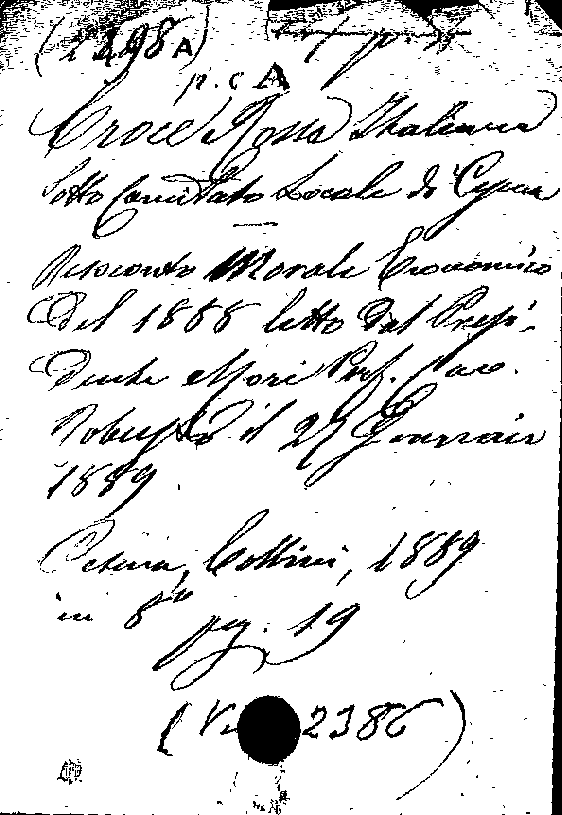 (2398A)
p. c A
Croce Rossa Italiana
Sotto Comitato Locale di Cesena
Resoconto Morale Economico
del 1888 letto dal Presi-
dente Mori Prof. Cav.
Robusto il 27 Gennaio
1889
Cesena, Bettini, 1889
in 8° pag. 19
2386)